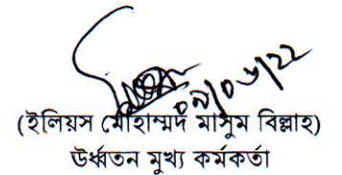 (ইলিয়স মোহাম্মদ মাসুম বিল্লাহ)
উর্ধ্বতন মুখ্য কর্মকর্তা